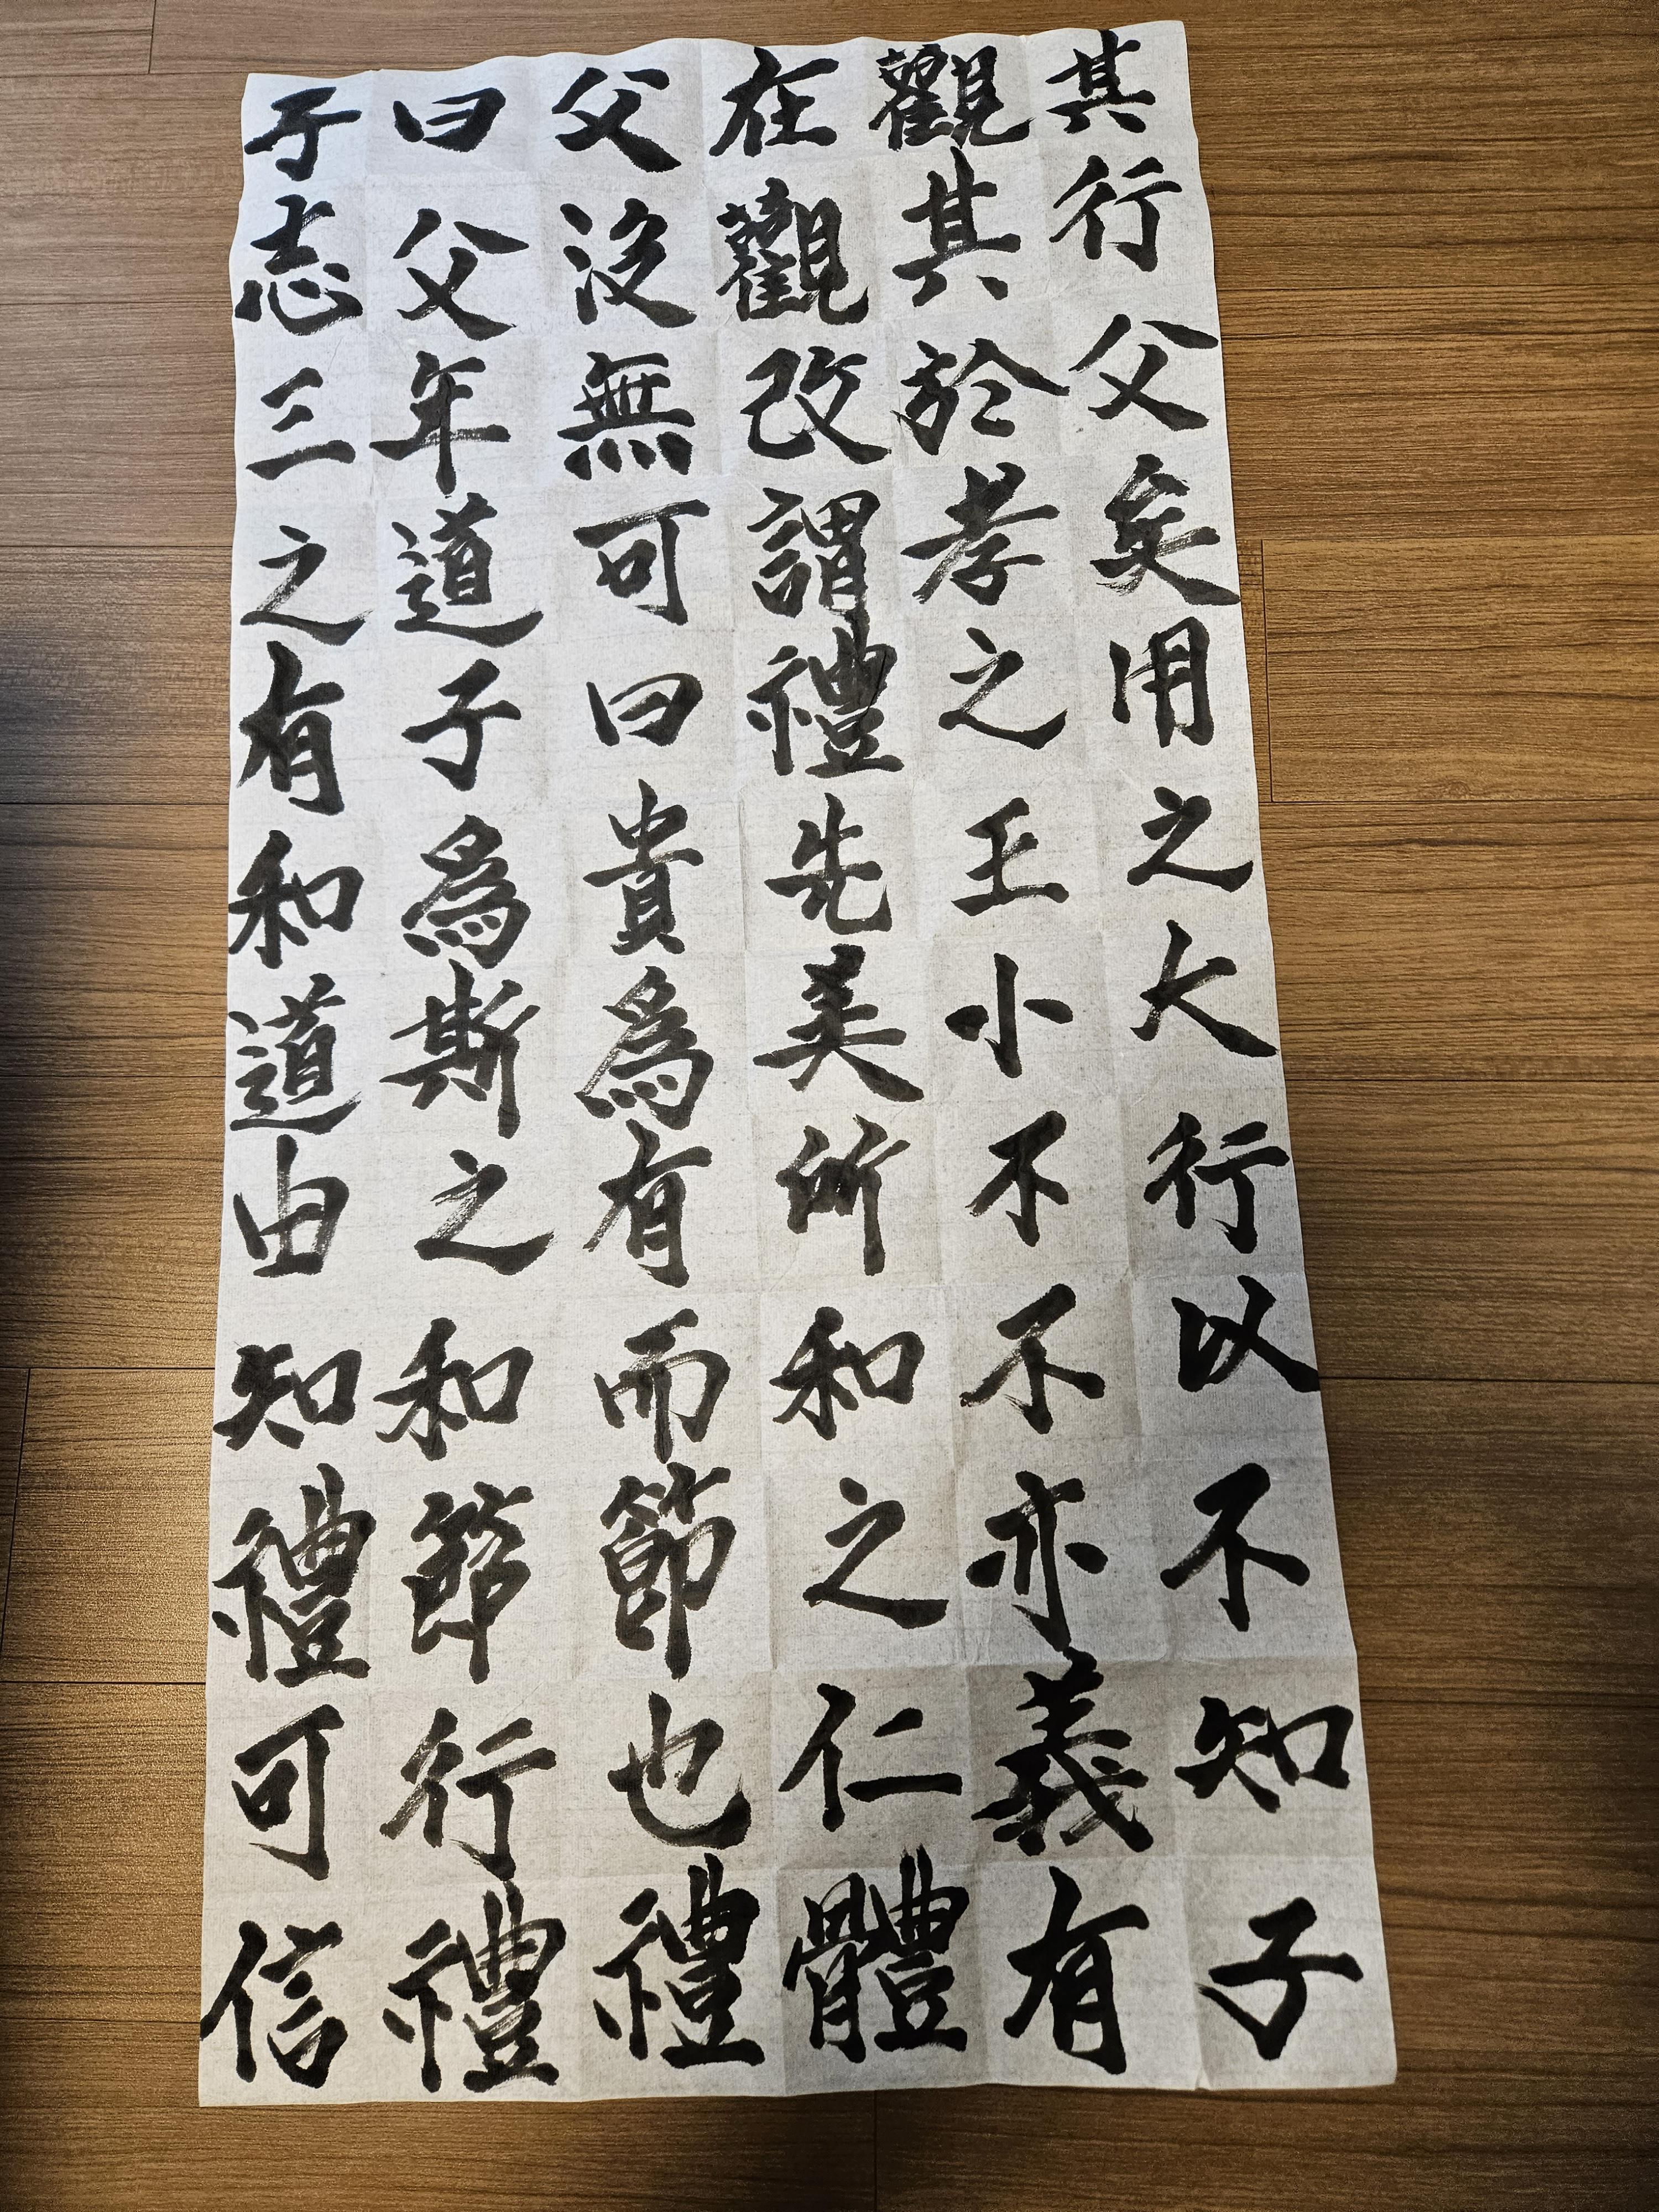 子曰父在觀其
志父没觀其行
三年無改於父
之道可謂孝矣
有子曰禮之用
和爲貴先王之
道斯爲美小大
由之有所不行
知和而和不以
禮節節之亦不
可行也仁義知
信禮禮體有子